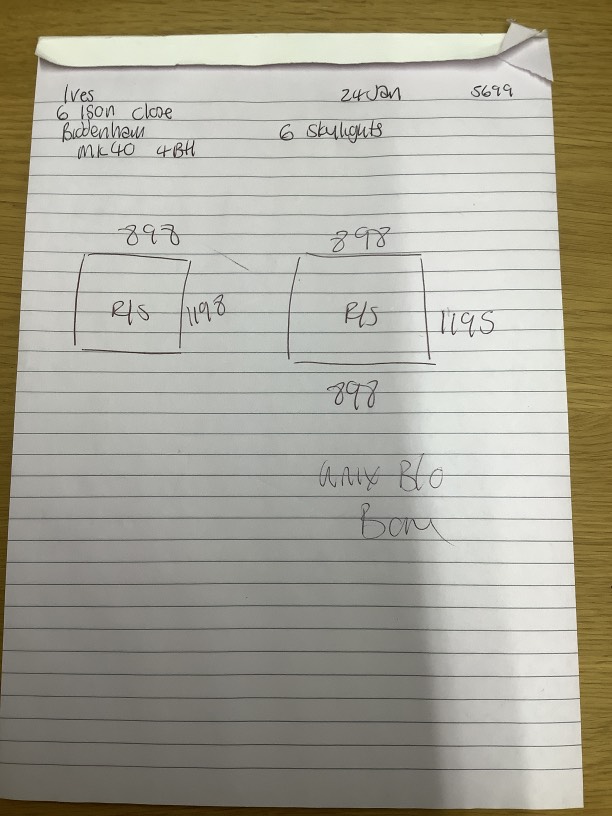 Ives 24 Jan 5699
6 Ison Close
Biddenham 6 Skylights
MK40 4BH
898 898
R/S 1198 R/S 1195
898
B/O